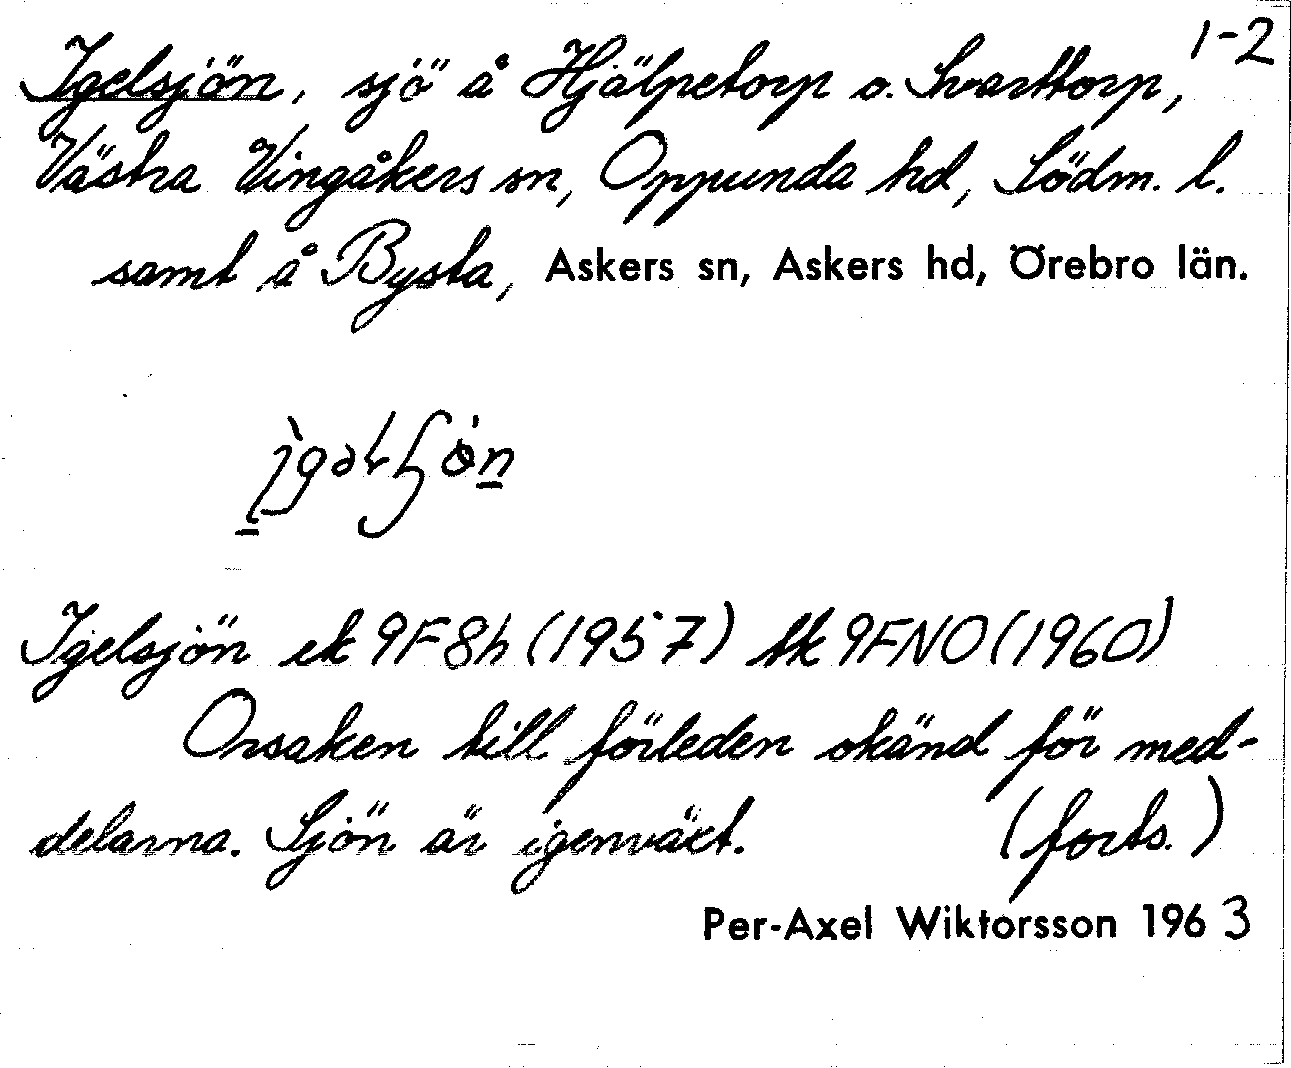 1-2
Igelsjön, sjö å Hjälpetorp o. Svarttorp,
Västra Vingåkers sn, Oppunda hd, Södm. l.
samt å Bysta, Askers sn, Askers hd, Örebro län.
Igelsjön ek 9F8h (1957) tk 9FNO (1960)
Orsaken till förleden okänd för med-
delarna. Sjön är igenväxt. (forts.)
Per-Axel Wiktorsson 1963